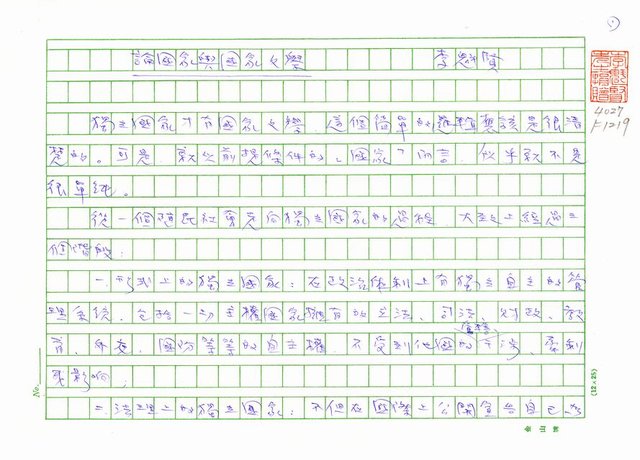 1
論國家與國家文學 李敏勇
4027
F1219
獨立國家才有國家文學，這個簡單的邏輯應該是很清
楚的。可是，就以前提條件的「國家」而言，似乎就不是
很單純。
從一個殖民社會走向獨立國家的過程，大致上經過三
個階段：
一、形式上的獨立國家：在政治体制上有獨立自主的管
理系統，包括一切主權國家擁有的立法、司法、財政、教
育、外交、國防等等的自主權，不受到他國的直接干涉、牽制
或影響。
二、法理上的獨立國家：不但在國際上公開宣告自己
No.
(12×25)